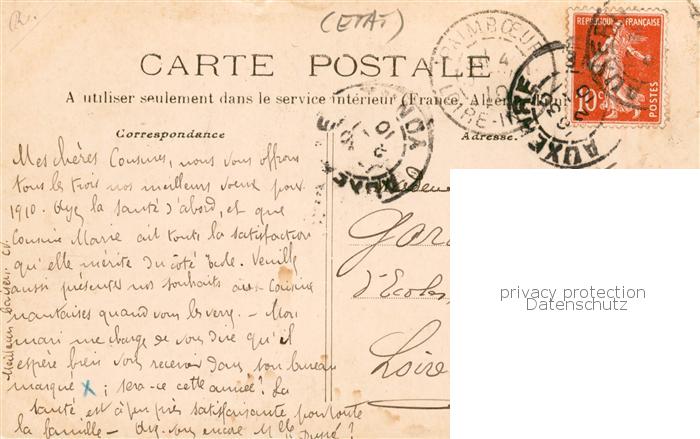 (ETAT)
CARTE POSTALE
A utiliser seulement dans le service intérieur (France, Algérie
Correspondance
Adresse.
Mes chères Cousines, nous vous offrons
tous les trois nos meilleurs voeux pour
1910. Ayez la santé d'abord, et que
Cousine Marie ait toute la satisfaction
qu'elle mérite du côté école. Veuillez
aussi présenter nos souhaits aux Cousins
nantaises quand vous les verrez. - Mon
mari me charge de vous dire qu'il
espère bien vous recevoir dans son bureau
marqué x ; sera-ce cette année? La
santé est à peu près satisfaisante pour toute
la famille - Ayez-vous encore Melle
Meilleurs baisers
d'Ecole
Loire
PAIMBOEUF
LOIRE-IN
AUXERRE
YONNE
AUXERRE
REPUBLIQUE FRANÇAISE
10c
POSTES
privacy protection
Datenschutz